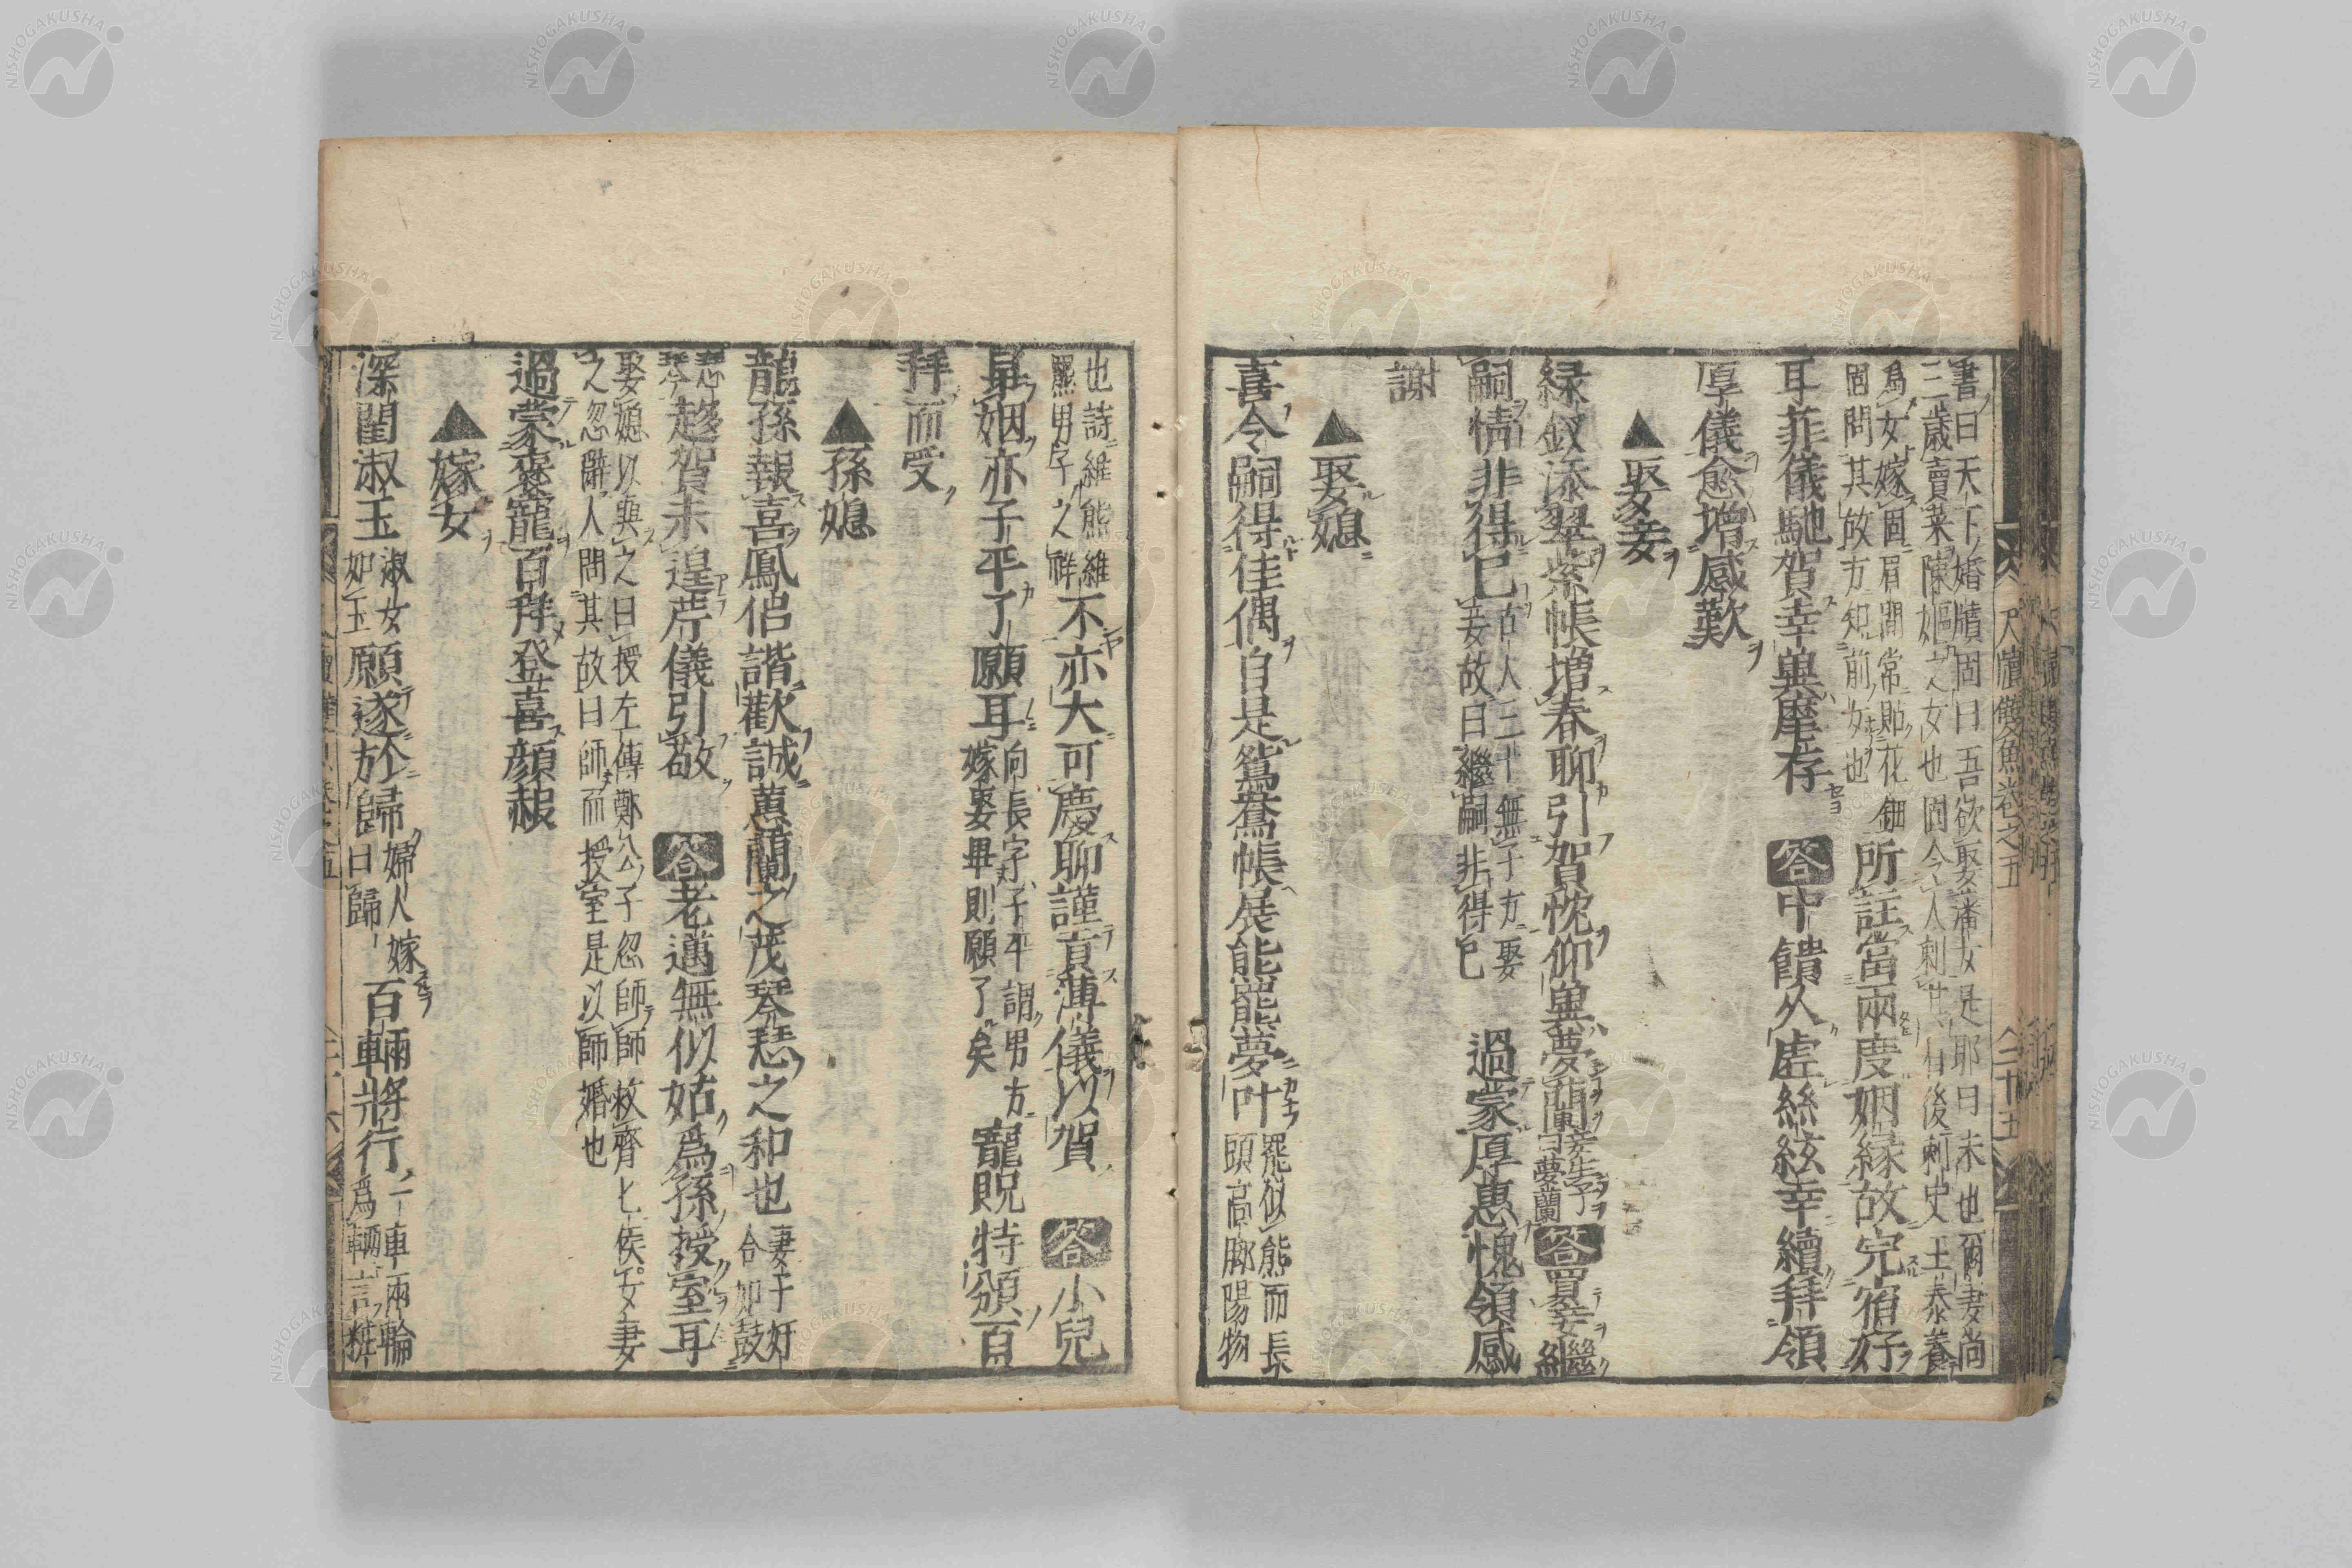 書曰天下婚牘固曰吾欲娶潘女是耶曰未也爾妻尚
三歲賣菜陳嫗之女也固令人刺其眉後刺史王泰養
爲女嫁固眉間常貼花鈿
固問其故方知前女也
所註當兩度姻緣故完宿好
耳菲儀馳賀幸與摩存 答中饋久虛絲絃幸續拜領
厚儀愈增感歎
▲娶妾
緑釵添翠紫帳增春聊引賀忱仰與夢蘭
妾生子
曰夢蘭
答買妾繼
嗣情非得已
古人三十無子方娶
妾故曰繼嗣非得已
過蒙厚惠愧領感
謝
▲娶媳
喜令嗣得佳偶自是鴛鴦帳展能羆夢叶
羆似熊而長
頭高脚陽物
也詩維熊維
羆男子之祥
不亦大可慶聊謹賁薄儀以賀 答小兒
畢姻亦子平了願耳
向長字子平謂男方
嫁娶畢則願了矣
寵貺特頒百
拜而受
▲孫媳
龍孫報喜鳳侶諧歡誠蕙蘭之茂琴瑟之和也
妻子好
合如鼓
瑟
琴
趨賀未遑芹儀引敬 答老邁無似姑爲孫授室耳
娶媳以與之曰授左傳鄭公子忽師師救齊七侯女妻
之忽辭人問其故曰師而授室是以師婚也
過蒙褒寵百拜登喜顏赧
▲嫁女
深閨淑玉
淑女
如玉
願遂於歸
婦人嫁
曰歸
百輛將行
一車兩輪
爲輛言糚
尺牘雙魚卷之五
二十五